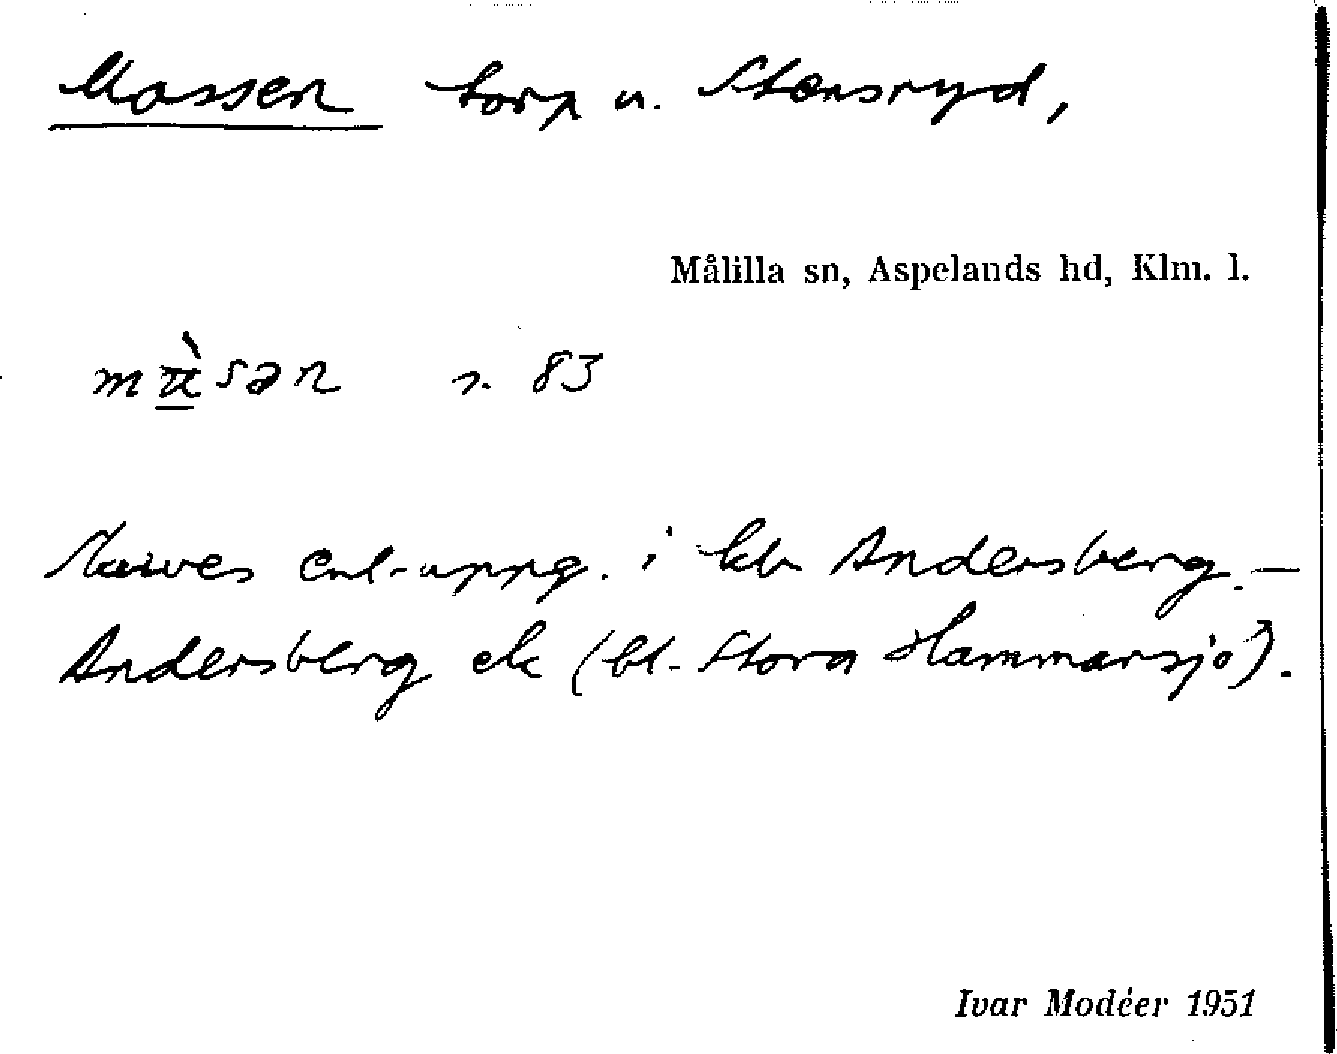 Mossen torp u. Stensryd,
Målilla sn, Aspelands hd, Klm. l.
s. 83
Skrives enl. uppg. i kb Andersberg. –
Andersberg ek (bl. Stora Hammarsjö).
Ivar Modéer 1951